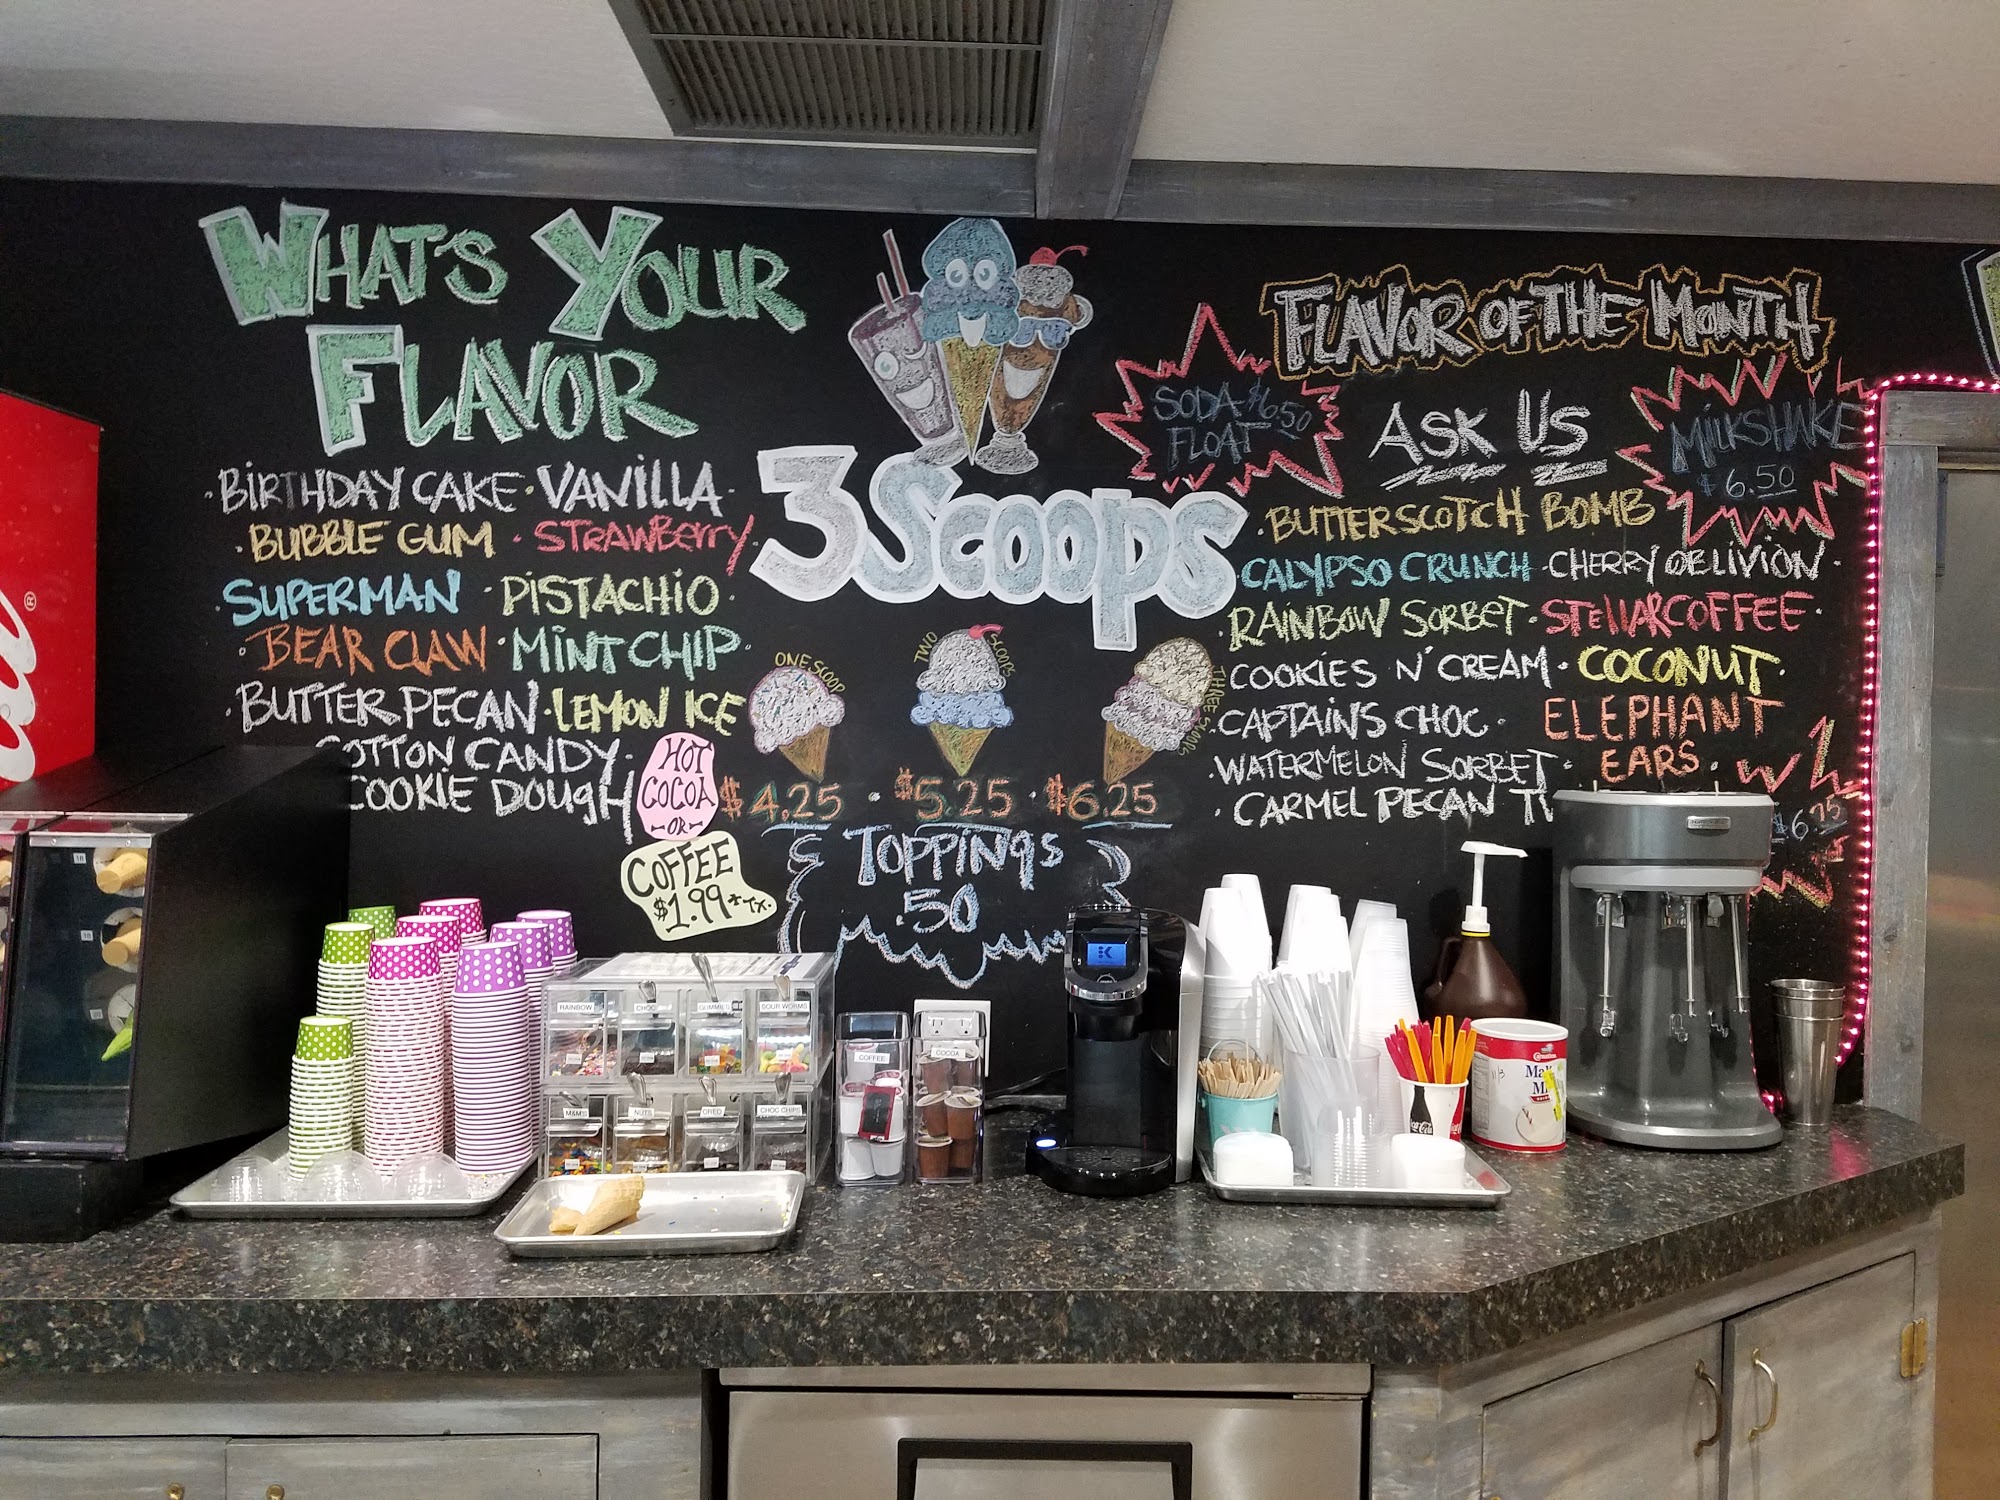 WHAT'S YOUR
FLAVOR
·BIRTHDAY CAKE·VANILLA·
·BUBBLE GUM·STRAWBERRY·
SUPERMAN·PISTACHIO·
·BEAR CLAW·MINT CHIP·
·BUTTER PECAN·LEMON ICE
COTTON CANDY·
COOKIE DOUGH
HOT
COCOA
-OR-
COFFEE
$1.99*TX.
3SCOOPS
ONE SCOOP
TWO SCOOPS
THREE SCOOPS
$4.25·$5.25·$6.25
TOPPINGS
.50
SODA $6.50
FLOAT
FLAVOR OF THE MONTH
ASK US
MILKSHAKE
$6.50
·BUTTERSCOTCH BOMB
CALYPSO CRUNCH·CHERRY OBLIVION·
RAINBOW SORBET·STELLARCOFFEE·
COOKIES N' CREAM·COCONUT·
·CAPTAINS CHOC·ELEPHANT
EARS·
·WATERMELON SORBET·
·CARMEL PECAN
$6.25
RAINBOW
CHOC
GUMMIES
SOUR WORMS
M&M'S
NUTS
OREO
CHOC CHIPS
COFFEE
COCOA
K
Carnation
Coca-Cola
18
18